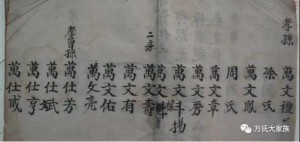 孝孫
萬文種
徐氏
萬文殷
周氏
萬文章
萬文秀
萬文斗
揚
萬文
二房
萬文壽
萬文有
萬文佑
萬文亮
孝曾孫
萬仕芳
萬仕斌
萬仕亨
萬仕或
万氏大家族